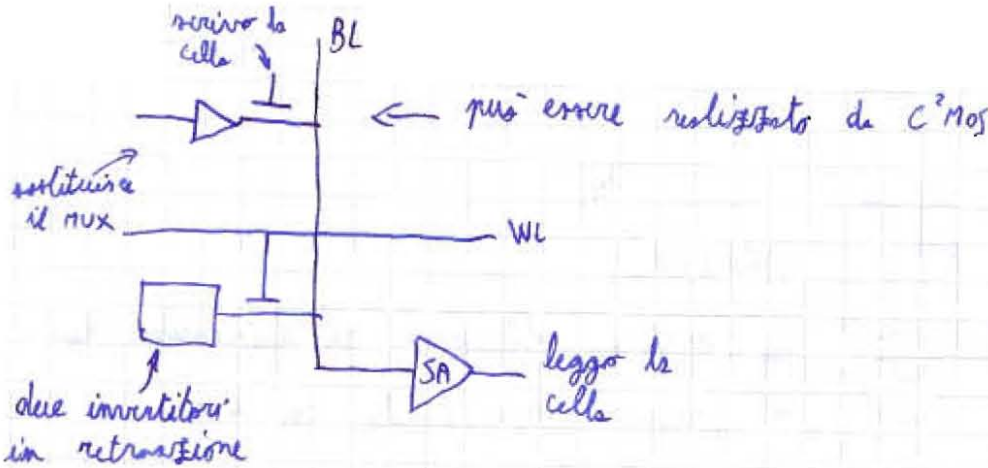 scrivo la
cella
BL
← può essere realizzato da C²MOS
sostituisce
il MUX
WL
SA
leggo la
cella
due invertitori
in retroazione